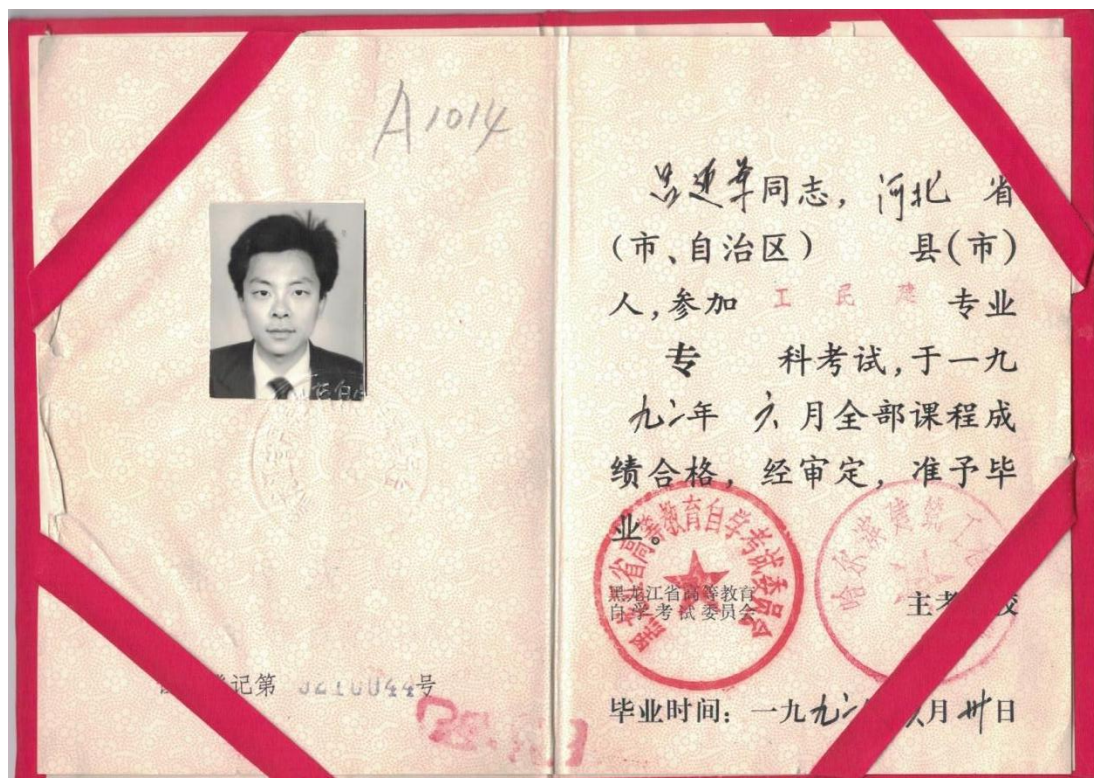 A1014
记第 号
同志，河北 省
(市、自治区) 县(市)
人，参加 工民建 专业
专 科考试，于一九
九二年 六月全部课程成
绩合格，经审定，准予毕
业。
黑龙江省高等教育自学考试委员会
黑龙江省高等教育
自学考试委员会
哈尔滨建筑工
主考 校
毕业时间：一九九二 月卅日